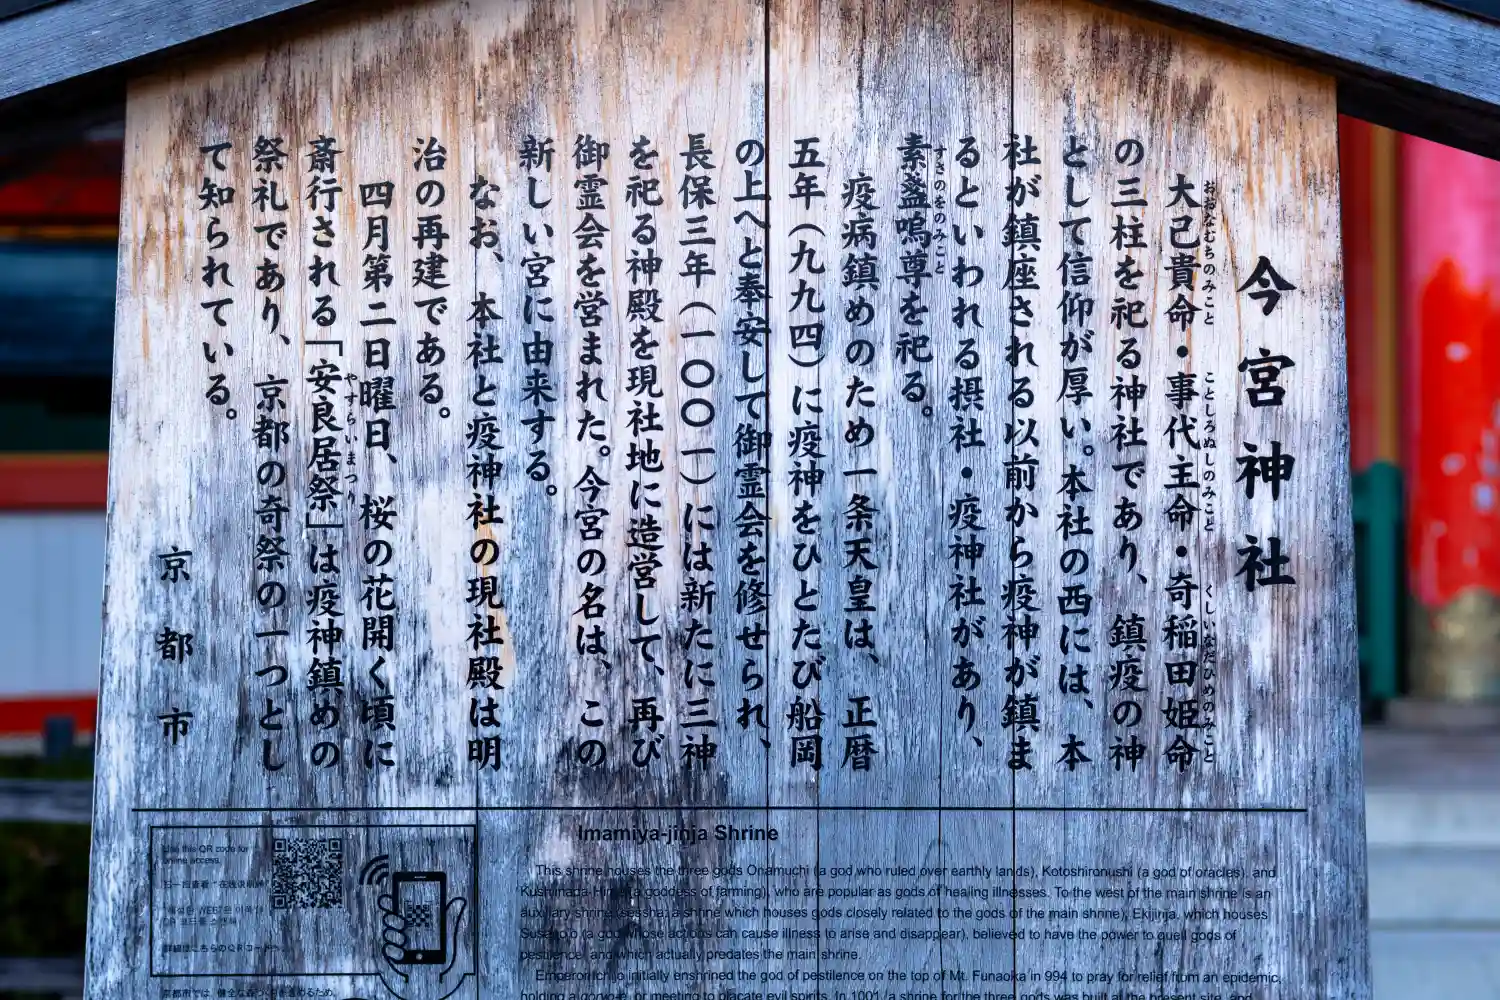 今宮神社
大己貴命・事代主命・奇稲田姫命
おおなむちのみこと ことしろぬしのみこと くしいなだひめのみこと
の三柱を祀る神社であり、鎮疫の神
として信仰が厚い。本社の西には、本
社が鎮座される以前から疫神が鎮ま
るといわれる摂社・疫神社があり、
素盞嗚尊を祀る。
すさのをのみこと
疫病鎮めのため一条天皇は、正暦
五年（九九四）に疫神をひとたび船岡
の上へと奉安して御霊会を修せられ、
長保三年（一〇〇一）には新たに三神
を祀る神殿を現社地に造営して、再び
御霊会を営まれた。今宮の名は、この
新しい宮に由来する。
なお、本社と疫神社の現社殿は明
治の再建である。
四月第二日曜日、桜の花開く頃に
斎行される「安良居祭」は疫神鎮めの
やすらいまつり
祭礼であり、京都の奇祭の一つとし
て知られている。
京都市
Use this QR code for
online access.
詳細はこちらのQRコードへ
Imamiya-jinja Shrine
This shrine houses the three gods Onamuchi (a god who ruled over earthly lands), Kotoshironushi (a god of oracles), and
Kushinada-Hime (a goddess of farming), who are popular as gods of healing illnesses. To the west of the main shrine is an
auxiliary shrine (sessha; a shrine which houses gods closely related to the gods of the main shrine), Ekijinja, which houses
Susano'o (a god whose actions can cause illness to arise and disappear), believed to have the power to quell gods of
pestilence, and which actually predates the main shrine.
Emperor Ichijo initially enshrined the god of pestilence on the top of Mt. Funaoka in 994 to pray for relief from an epidemic,
holding a goryo-e, or meeting to placate evil spirits. In 1001, a shrine for the three gods was built at the present site, and